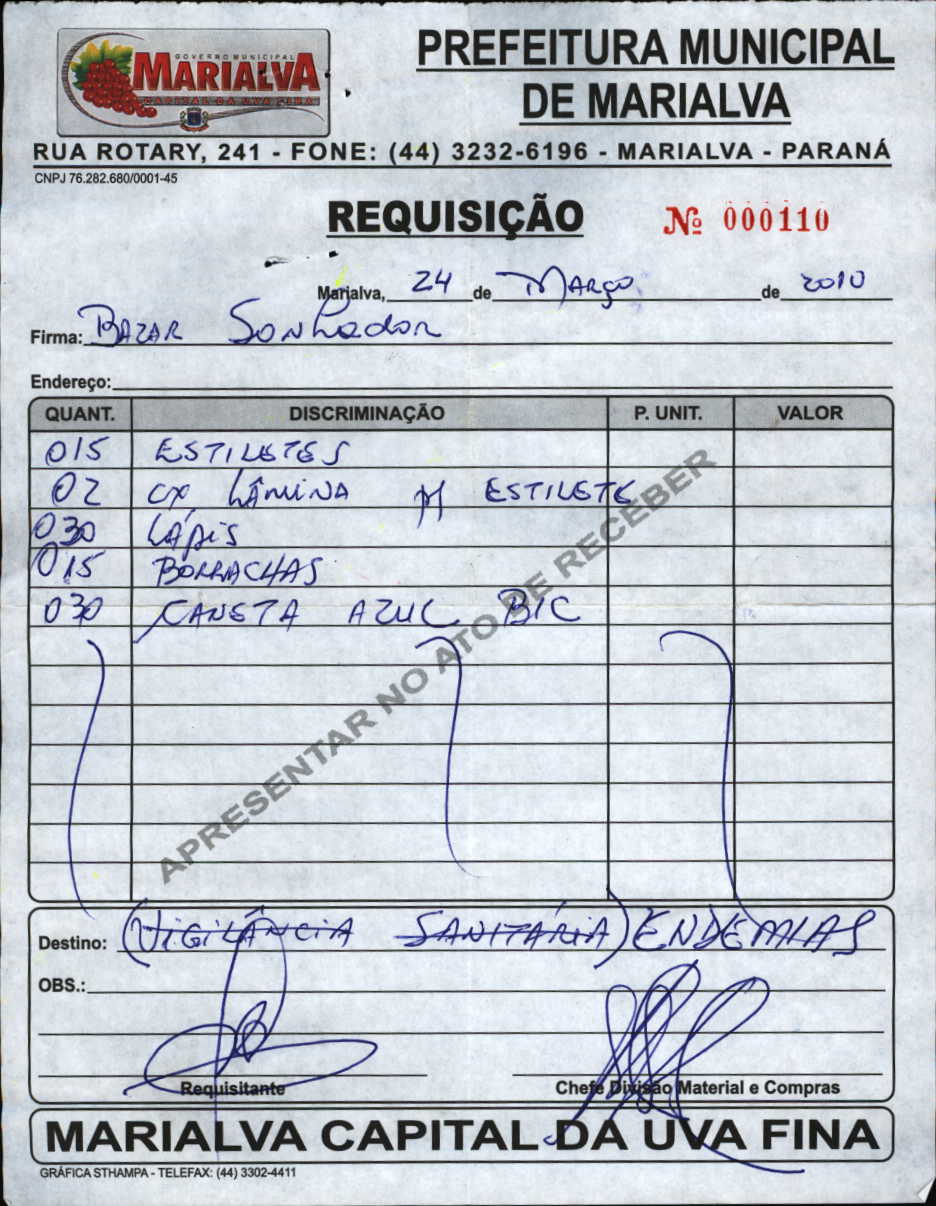 GOVERNO MUNICIPAL
MARIALVA
CAPITAL DA UVA FINA
PREFEITURA MUNICIPAL
DE MARIALVA
RUA ROTARY, 241 - FONE: (44) 3232-6196 - MARIALVA - PARANÁ
CNPJ 76.282.680/0001-45
REQUISIÇÃO Nº 000110
Marialva, 24 de Março de 2010
Firma: BAZAR Sonhador
Endereço:
QUANT. DISCRIMINAÇÃO P. UNIT. VALOR
015 ESTILETES
02 CX LÂMINA P/ ESTILETE
030 LÁPIS
015 BORRACHAS
030 CANETA AZUL BIC
APRESENTAR NO ATO DE RECEBER
Destino: (VIGILÂNCIA SANITÁRIA) ENDEMIAS
OBS.:
Requisitante Chefe Divisão Material e Compras
MARIALVA CAPITAL DA UVA FINA
GRÁFICA STHAMPA - TELEFAX: (44) 3302-4411